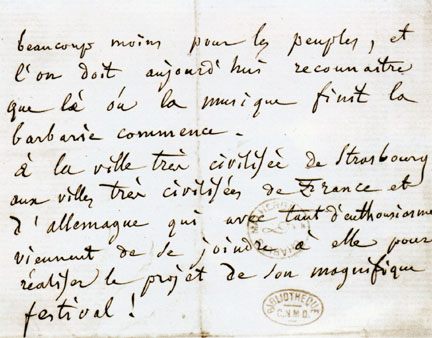 beaucoup moins pour les peuples, et
l'on doit aujourd'hui reconnaitre
que là où la musique finit la
barbarie commence.
à la ville très civilisée de Strasbourg
aux villes très civilisées de France et
d'allemagne qui avec tant d'enthousiasme
viennent de se joindre à elle pour
réaliser le projet de son magnifique
festival!
BIBLIOTHEQUE
C.N.M.D.